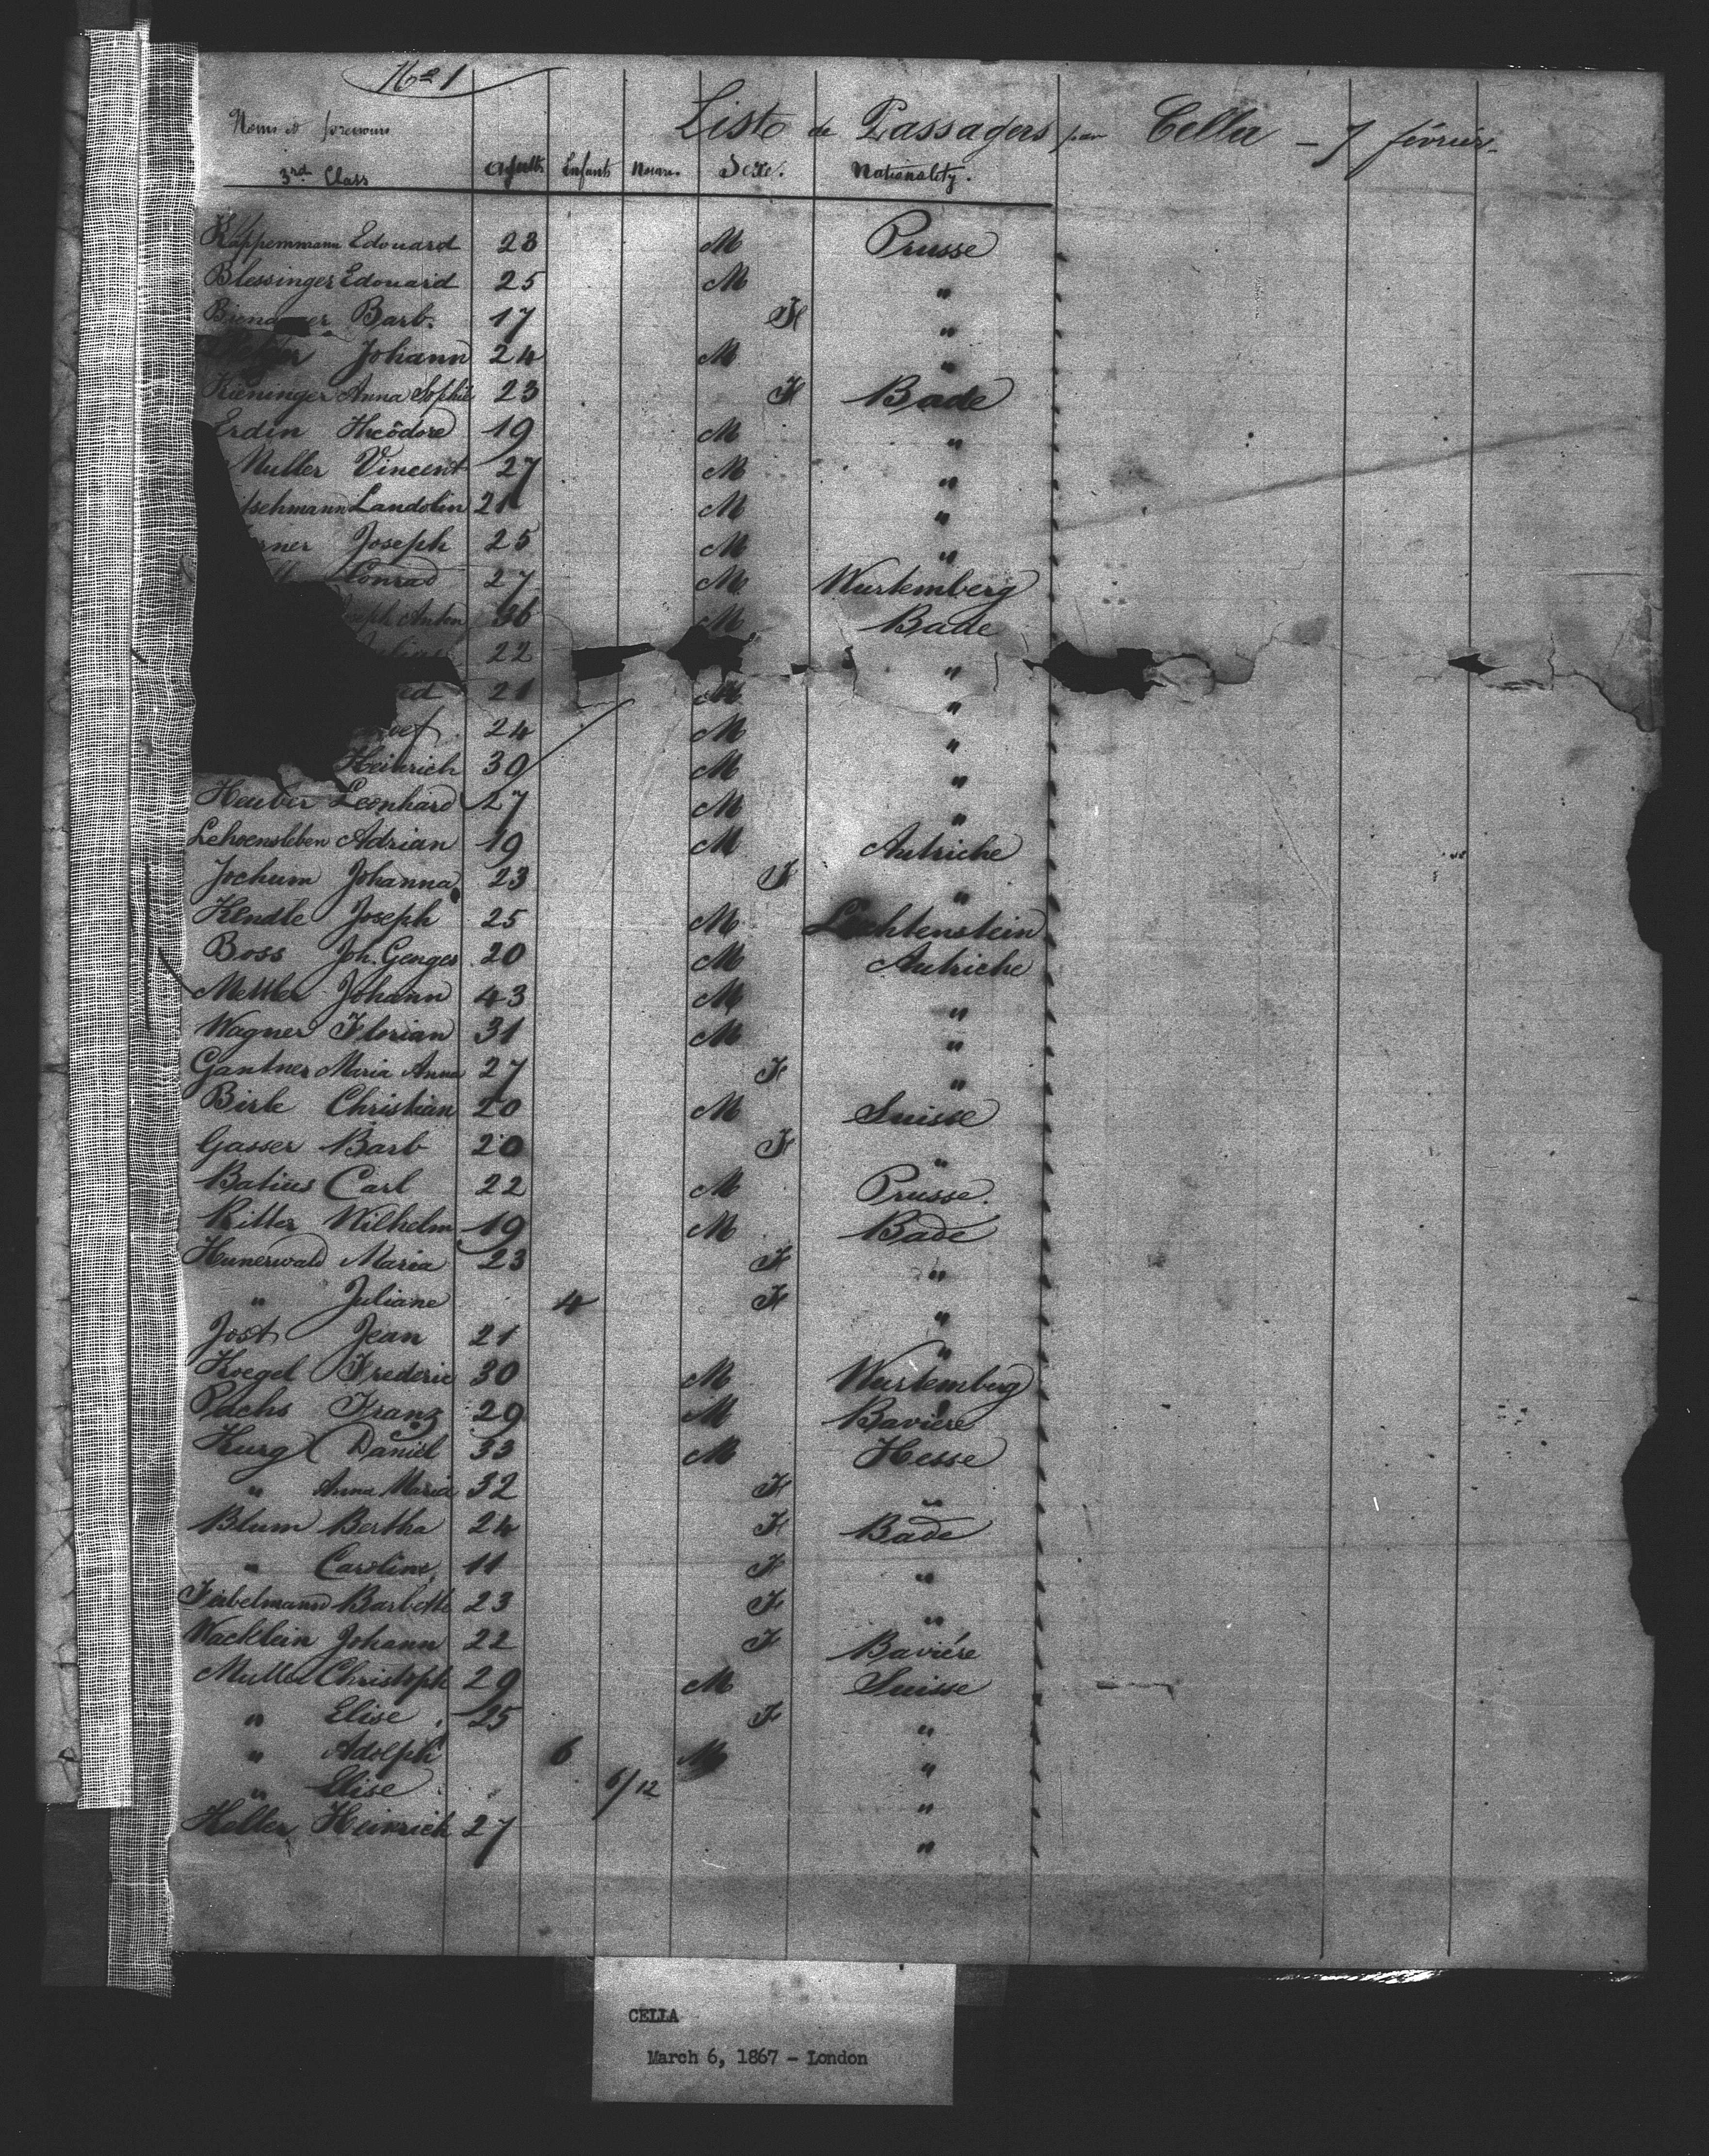 No 1
Liste de Passagers par Cella - 7 février.
Noms et prenoms
3rd Class Adults Enfants Nourr. Sexe. Nationality.
Kappemmann Edouard 23 M Prusse
Blessinger Edouard 25 M "
Barb. 17 F "
Johann 24 M "
Kieninger Anna Sophie 23 F Bade
Erdin Theôdore 19 M "
Muller Vincent 27 M "
Landolin 21 M "
Joseph 25 M "
Conrad 27 M Wurtemberg
Anton 36 M Bade
22 "
21 M "
24 M "
Heinrich 30 M "
Heuber Leonhard 27 M "
Lehoensleben Adrian 19 M Autriche
Jochum Johanna 23 F "
Kendle Joseph 25 M Liechtenstein
Boss Joh. Genges 20 M Autriche
Mettler Johann 43 M "
Wagner Florian 31 M "
Gantner Maria Anna 27 F "
Birk Christian 20 M Suisse
Gasser Barb 20 F "
Batius Carl 22 M Prusse.
Ritter Wilhelm 19 M Bade
Hunerwald Maria 23 F "
" Juliane 4 F "
Jost Jean 21 "
Koegel Frederic 30 M Wurtemberg
Pachs Franz 29 M Baviére
Kurg Daniel 33 M Hesse
" Anna Maria 32 F "
Blum Bertha 24 F Bade
" Caroline 11 F "
Feibelmann Barbette 23 F "
Wacklein Johann 22 F Baviére
Muller Christoph 29 M Suisse
" Elise 25 F "
" Adolph 6 M "
" Elise 6/12 "
Heller Heinrich 27 "
CELLA
March 6, 1867 - London